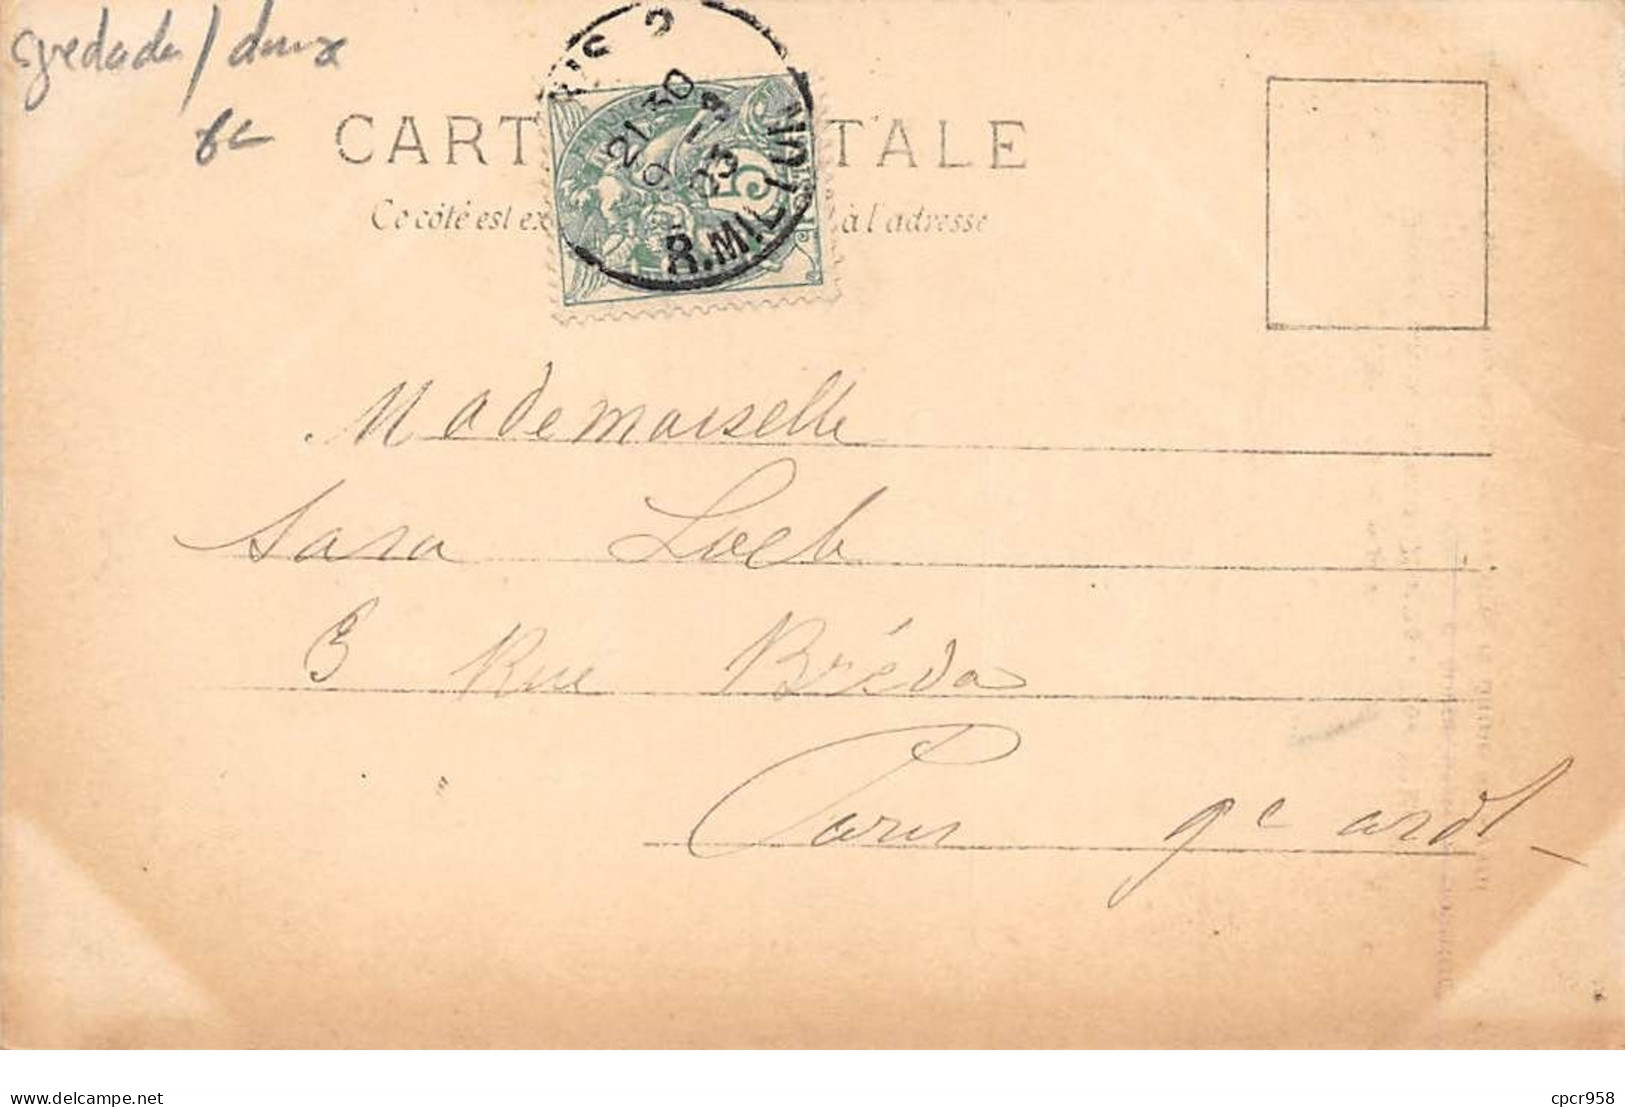 CART TALE
Ce côté est ex à l'adresse
2
21 30
9 - 1
03
R. MILTON
5
Mademoiselle
Sara Loeb
3 Rue Bréda
Paris 9e ardt
www.delcampe.net
cpcr958